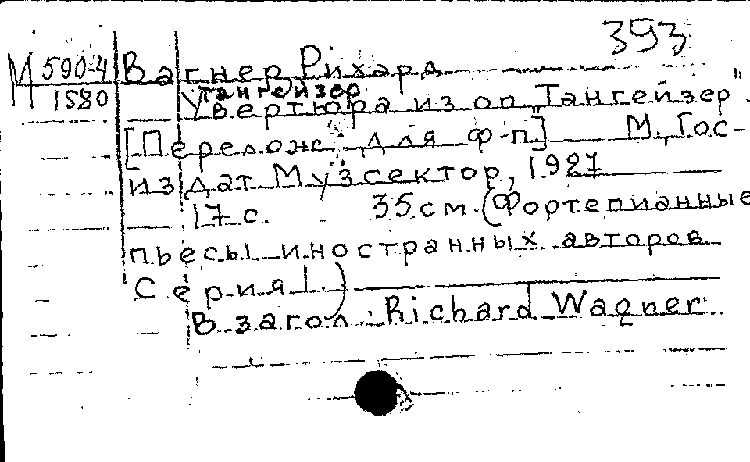 393
М 590-4 Вагнер Рихард
1580 Тангейзер
Увертюра из оп. "Тангейзер".
[Перелож. для ф-п] М, Гос-
издат Музсектор, 1927
17 с. 35 см. (Фортепианные
пьесы иностранных авторов
Серия I)
В загол: Richard Wagner